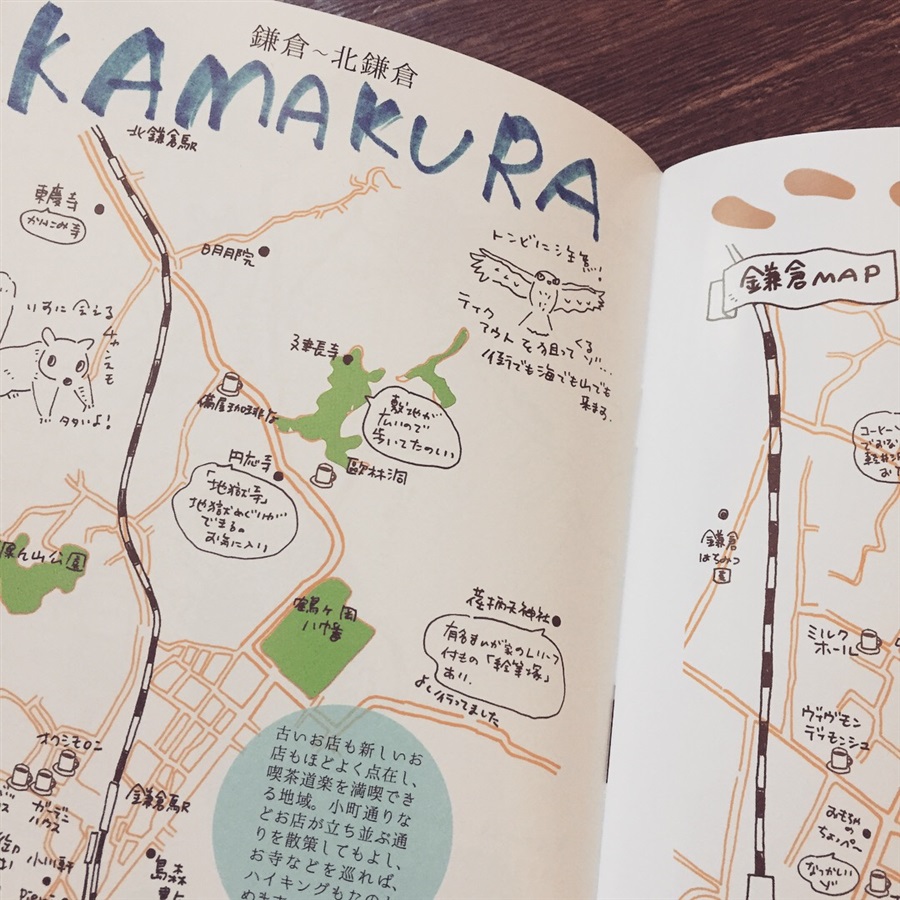 鎌倉〜北鎌倉
KAMAKURA
北鎌倉駅
東慶寺
かけこみ寺
明月院
トンビに注意!
テイク
アウトを狙って
くる
街でも海でも山でも
来ます.
いすに会える
チャンスも
建長寺
敷地が
広いので
歩いてたのしい
歐林洞
円応寺
「地獄寺」
地獄めぐりが
できるの
お気に入り
山公園
鶴ヶ岡
八幡
荏柄天神社
有名まんが家のレリーフ
付もの「絵筆塚」
あり.
よく行ってました
古いお店も新しいお
店もほどよく点在し、
喫茶道楽を満喫でき
る地域。小町通りな
どお店が立ち並ぶ通
りを散策してもよし、
お寺などを巡れば、
ハイキングもたのし
ガーデン
ハウス
鎌倉駅
小川軒
島森
鎌倉MAP
コーヒー
鎌倉
はちみつ
園
ミルク
ホール
ヴィヴモン
ディモンシュ
おもちゃ
の
ちょっぺー
なつかしい
ゾ